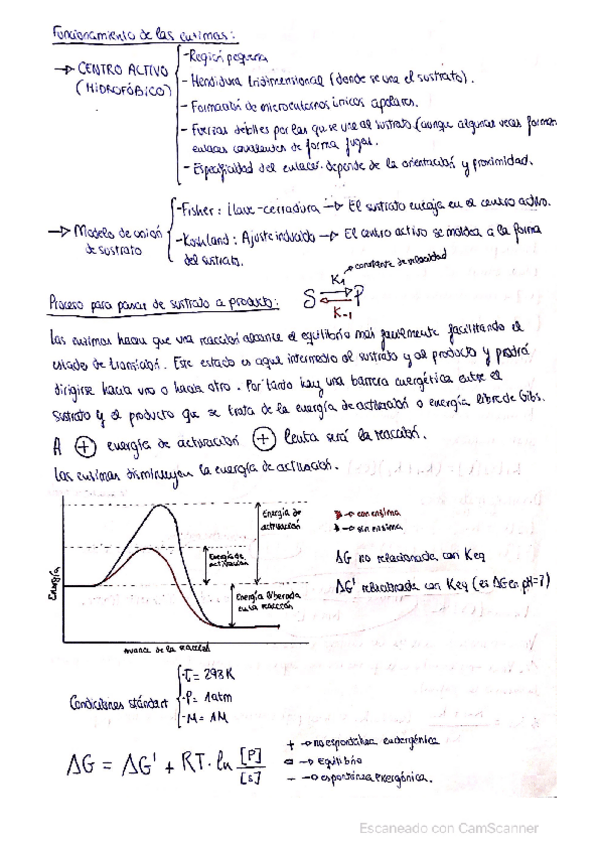 Funcionamiento de las enzimas:
→ CENTRO ACTIVO (HIDROFÓBICO)
- Región pequeña
- Hendidura tridimensional (donde se une el sustrato).
- Formación de microentornos únicos apolares.
- Fuerzas débiles por las que se une al sustrato (aunque algunas veces forman
enlaces covalentes de forma fugaz.
- Especificidad del enlace: depende de la orientación y proximidad.
→ Modelo de unión de sustrato
- Fisher: llave-cerradura → El sustrato encaja en el centro activo.
- Koshland: Ajuste inducido → El centro activo se moldea a la forma
del sustrato.
Proceso para pasar de sustrato a producto:
S ⇌ P
K1
K-1
constante de velocidad
Las enzimas hacen que una reacción alcance el equilibrio más fácilmente facilitando el
estado de transición. Este estado es aquel intermedio al sustrato y al producto y podrá
dirigirse hacia uno o hacia otro. Por tanto hay una barrera energética entre el
sustrato y el producto que se trata de la energía de activación o energía libre de Gibs.
A + energía de activación + lenta será la reacción.
Las enzimas disminuyen la energía de activación.
Energía
Energía de activación
Energía de activación
Energía liberada en la reacción
Avance de la reacción
→ con enzima
→ sin enzima
ΔG no relacionada con Keq
ΔG' relacionada con Keq (es ΔG en pH=7)
Condiciones stándart
- T = 293K
- P = 1atm
- M = 1M
ΔG = ΔG' + RT · ln [P]/[S]
+ → no espontánea endergónica
→ Equilibrio
- → espontánea exergónica.
Escaneado con CamScanner